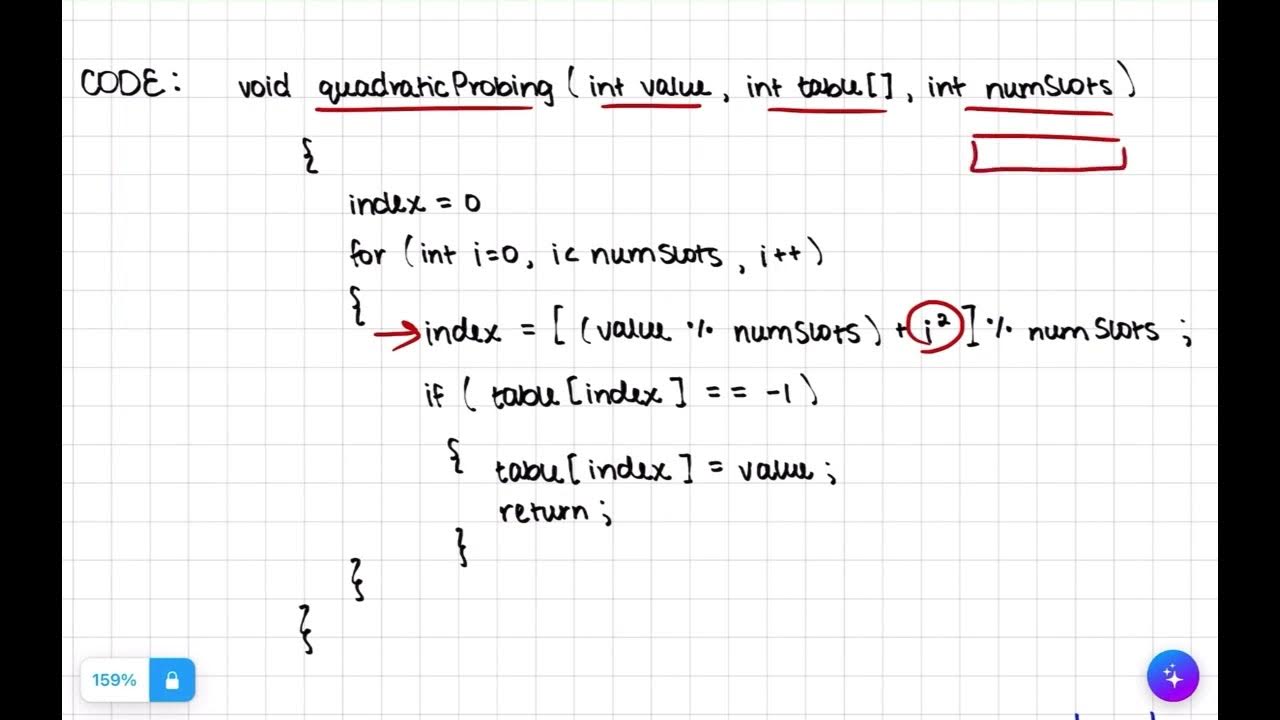 CODE: void quadraticProbing (int value, int table[], int numSlots)
{
index = 0
for (int i=0, i< numSlots, i++)
{
→ index = [(value % numSlots) + i²] % numSlots ;
if ( table[index] == -1)
{ table[index] = value;
return ;
}
}
}
159%